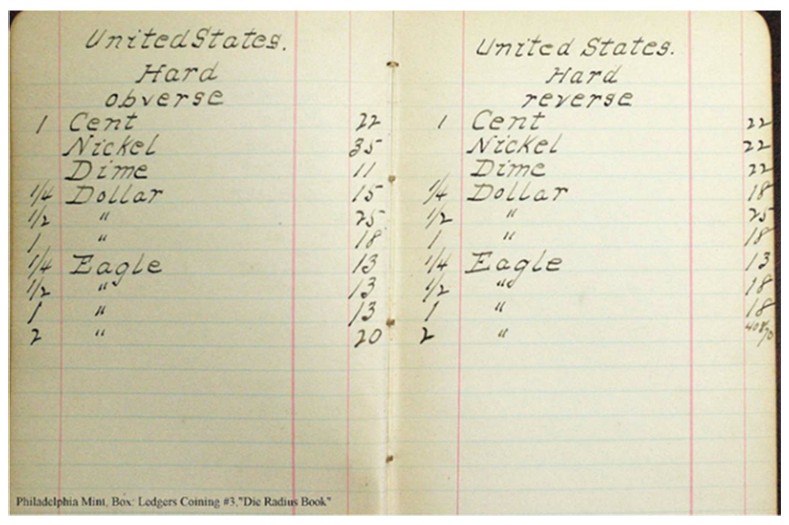 United States.
Hard
obverse
1 Cent 22
Nickel 35
Dime 11
1/4 Dollar 15
1/2 " 25
1 " 18
1/4 Eagle 13
1/2 " 13
1 " 13
2 " 20
United States.
Hard
reverse
1 Cent 22
Nickel 22
Dime 22
1/4 Dollar 18
1/2 " 25
1 " 18
1/4 Eagle 13
1/2 " 18
1 " 18
2 "
Philadelphia Mint, Box: Ledgers Coining #3,"Die Radius Book"